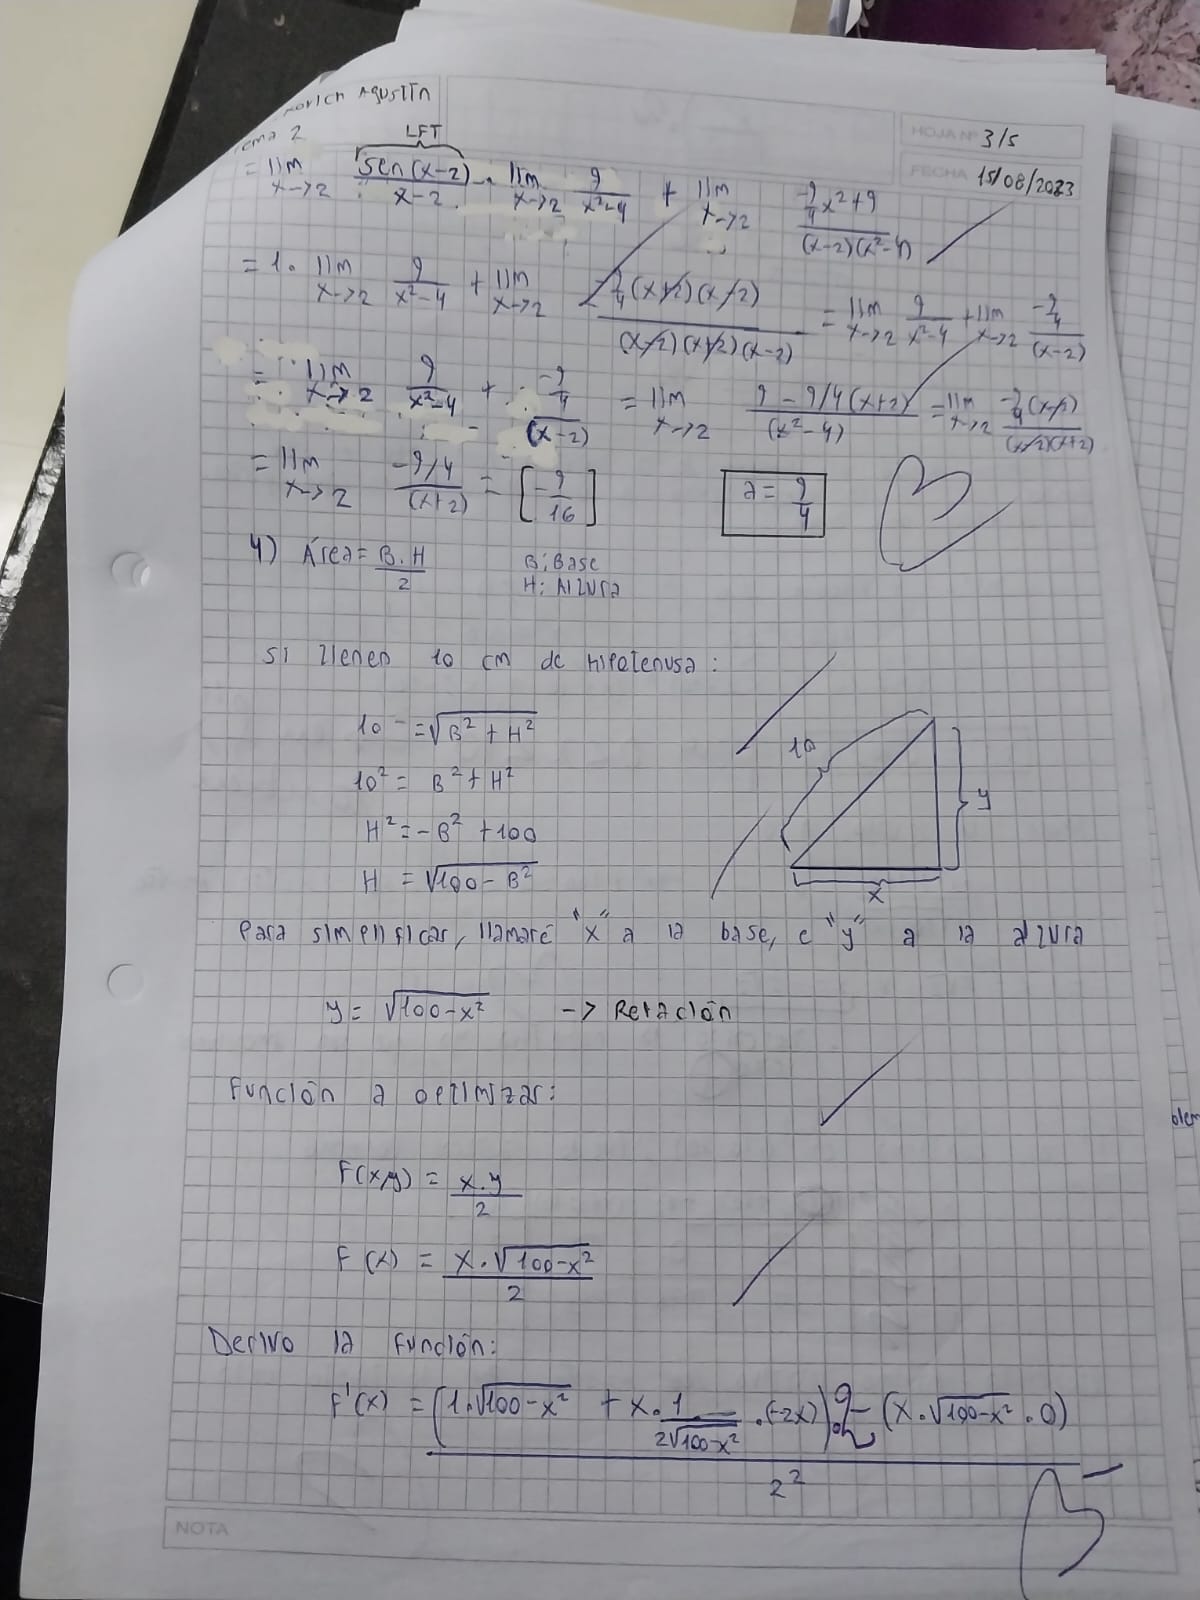 Agustín
HOJA Nº 3/5
Tema 2
FECHA 15/08/2023
LFT
= lim x→2 sen(x-2)/(x-2) · lim x→2 9/(x²-4) + lim x→2 (-9/4 x²+9)/((x-2)(x²-4))
= 1· lim x→2 9/(x²-4) + lim x→2 -9/4(x+2)(x-2)/((x-2)(x+2)(x-2)) = lim x→2 9/(x²-4) + lim x→2 (-9/4)/(x-2)
= lim x→2 9/(x²-4) + (-9/4)/(x-2) = lim x→2 (9-9/4(x+2))/(x²-4) = lim x→2 -9/4(x-2)/((x-2)(x+2))
= lim x→2 (-9/4)/(x+2) = [-9/16]
a = 9/4
B
4) Área = B.H/2
B: Base
H: Altura
Si tienen 10 cm de hipotenusa:
10 = √(B²+H²)
10² = B²+H²
H² = -B²+100
H = √(100-B²)
10
y
x
Para simplificar, llamaré "x" a la base, e "y" a la altura
y = √(100-x²) -> Relación
Función a optimizar:
F(x,y) = x.y/2
F(x) = x.√(100-x²)/2
Derivo la función:
F'(x) = ((1.√(100-x²) + x.1/(2√(100-x²)).(-2x)).2 - (x.√(100-x²).0))/2²
B-
NOTA